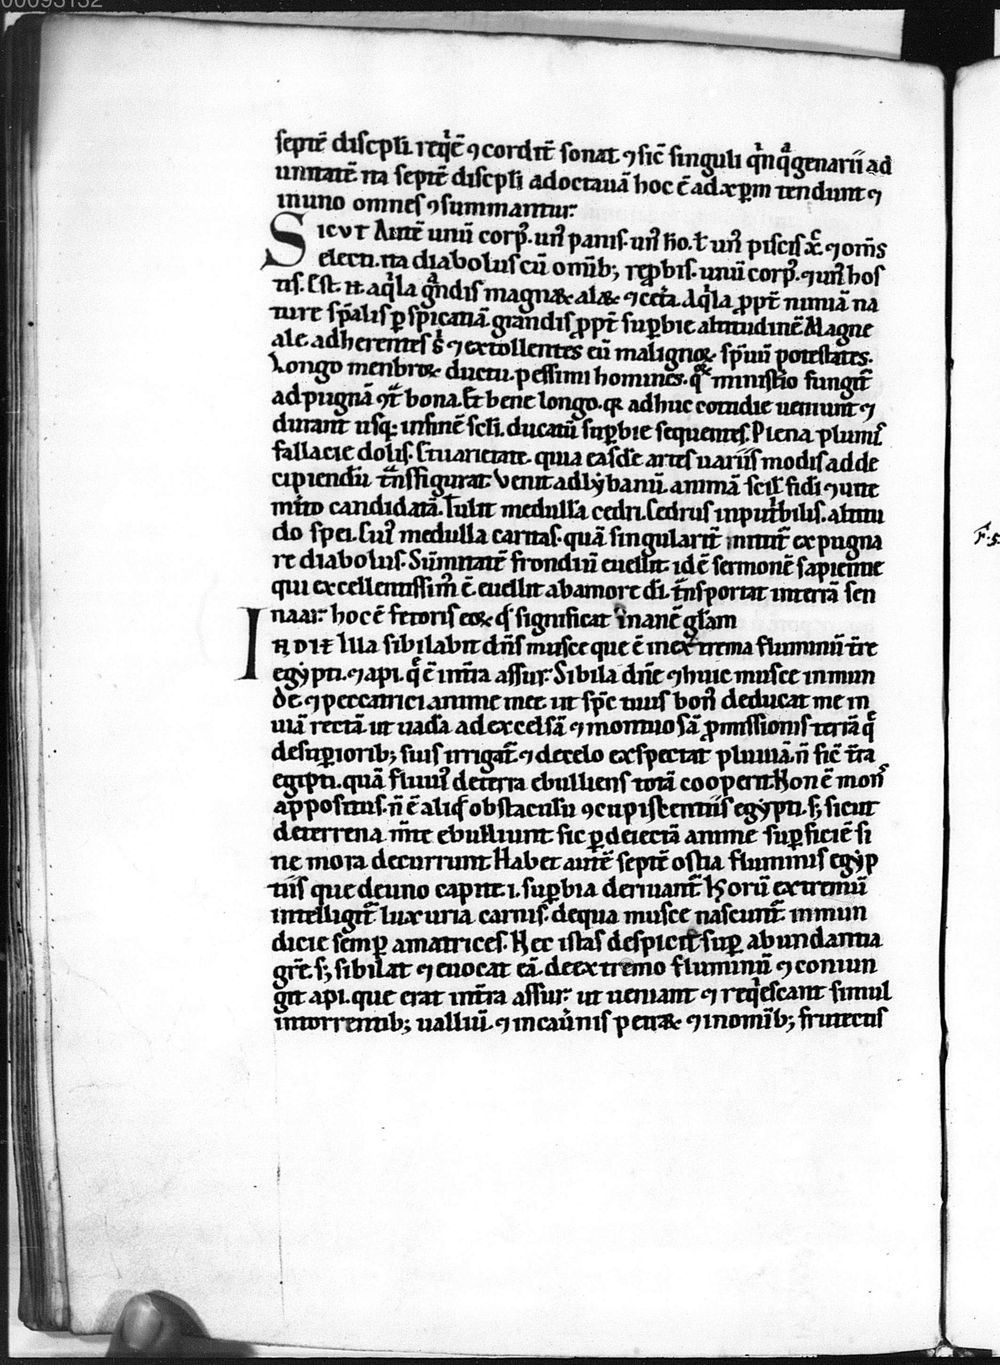 00093132
septē discpl̄i. req̇ē ⁊ cordīt sonat ⁊ sic̄ singuli qn̄qᵃgenarii ad
unitatē ita septē discpl̄i ad octauā hoc ē ad xp̄m tendunt ⁊
in uno omnes ꝯsummantur.
Sicvt Autē unū corpꝰ. unꝰ panis. unꝰ ho. ł unꝰ piscis xp̄c ⁊ om̄s
electi. ita diabolus cū omīb; rep̄bis. unū corpꝰ. ⁊ unꝰ hos
tis. Est
ture sp̄alis ꝑspicatiā. grandis ꝓpt̄ suꝑbie altitudinē Magne
ale. adherentes ⁊ extollentes eū malignoꝝ. spirituū potestates.
Longo menbroꝝ ductu. pessimi homines. ministͥo fungūt̄
ad pugnā ꝯt̄ bona. Et bene longo. qꝛ adhuc cotidie ueniunt ⁊
durant usq; in finē scl̄i. ducatū suꝑbie sequentes. Plena plumis
fallacie dolis. Et uarietate. quia easdē artes uariis modis ad de
cipiendū tn̄sfigurat. Venit ad lẏbanū. animā scil̄ fidi ⁊ uite
mīto candidatā. Tulit medullā cedri. Cedrus inputͥbilis. altitu
do spei. Cuiꝰ medulla caritas. quā singularit̄ intit̄ expugna
re diabolus. Sūmitatē frondiū euellit. id ē sermonē sapientie
qui excellentissimꝰ ē. euellit ab amore dī. tn̄sportat in terrā sen
naar. hoc ē fetoris eoꝝ qͥ significat inanē gl̄am
IN DIE Illa sibilabit dn̄s musce que ē in extrema fluminū tr̄e
egẏpti. ⁊ api. q̄ ē in tr̄a assur. Sibila dn̄e ⁊ huic musce inmun
de ⁊ peccatrici anime mee. ut sp̄c tuus bonꝰ deducat me in
uiā rectā. ut uadā ad excelsā ⁊ montuosā ꝓmissionis terrā q̄
de suꝑiorib; suis irrigat̄ ⁊ de celo exspectat pluuiā. n̄ sic̄ tr̄a
egipti. quā fluuiꝰ de terra ebulliens totā cooperit. Non ē mons
appositus. n̄ ē aliqͥd obstaculū ꝯcupiscentiis egẏpti. s; sicut
de terrena mt̄e ebulliunt sic ꝑ deiectā anime suꝑficiē si
ne mora decurrunt. Habet autē septē ostia fluminis egẏp
tiis que de uno capite .i. suꝑbia deriuant̄. Horū extremū
intelligit̄ luxuria carnis. de qua musce nascunt̄ inmun
dicie semꝑ amatrices. Nec istas despicit suꝑabundantia
gr̄e. s; sibilat ⁊ euocat eā. de extremo fluminū ⁊ coniun
git api. que erat in tr̄a assur. ut ueniant ⁊ reqͥescant simul
in torrentib; uallium. ⁊ in cauͥnis petraꝝ. ⁊ in omīb; frutectis